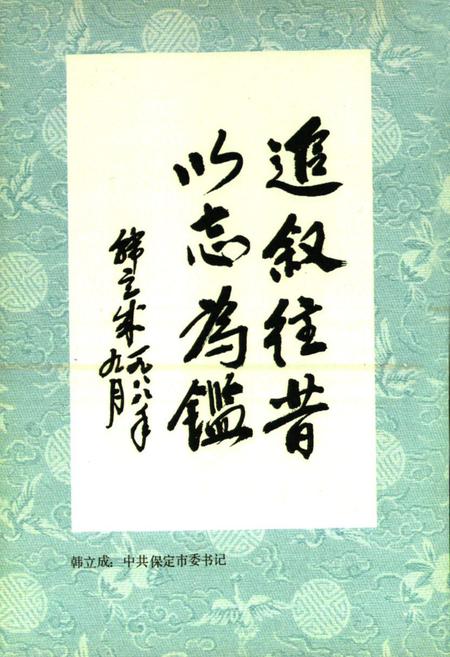 追叙往昔
以志为鑑
韩立成
一九八八年
九月
韩立成：中共保定市委书记